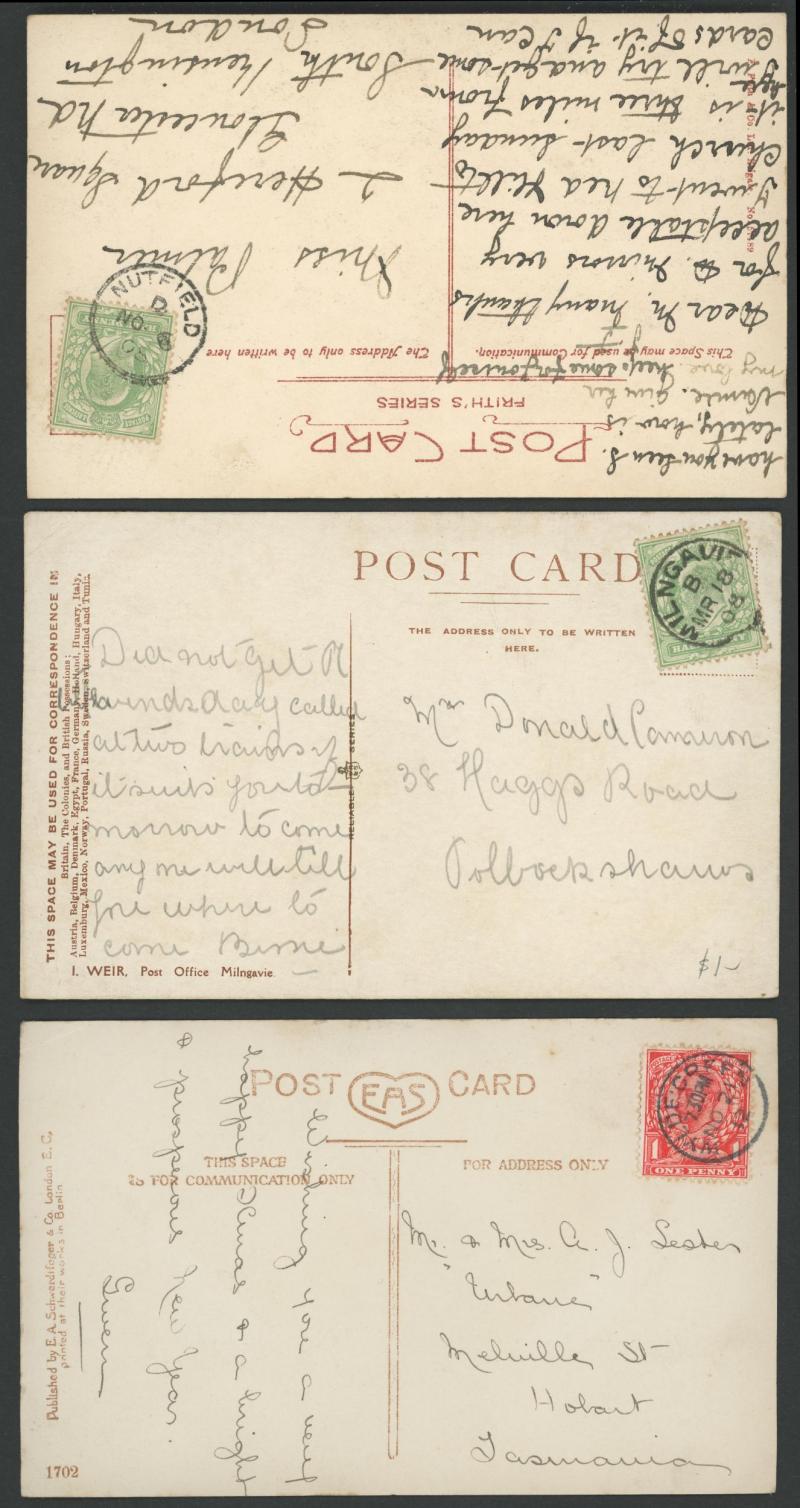 POST CARD
FRITH'S SERIES
This Space may be used for Communication,
The Address only to be written here
Dear M. many thanks
for
mirrors very
acceptable down here
I went to Red Hill
church last Sunday
it is three miles from
here
I will try and get some
cards of it if I can
have you seen S.
lately, how is
give her
my love. keep some for yourself
Miss Palmer
2 Hereford Square
Gloucester Rd
South Kensington
London
NUTFIELD
D
NO 8
POST CARD
THIS SPACE MAY BE USED FOR CORRESPONDENCE IN
Britain, The Colonies, and British Possessions;
Austria, Belgium, Denmark, Egypt, France, Germany, Holland, Hungary, Italy,
Luxemburg, Mexico, Norway, Portugal, Russia, Sweden, Switzerland and Tunis.
THE ADDRESS ONLY TO BE WRITTEN
HERE.
RELIABLE SERIES
Did not get
windsday called
at two trains if
it suits you to
morrow to come
any one will till
you where to
come
I. WEIR, Post Office Milngavie
Mr Donald Cameron
38 Haggs Road
Pollockshaws
$1-
MILNGAVIE
B
MR 18
08
POST EAS CARD
THIS SPACE
IS FOR COMMUNICATION ONLY
FOR ADDRESS ONLY
Wishing you a very
happy Xmas & a bright
& prosperous New Year.
Gwen
Mr. & Mrs. A. J. Lester
"Urbane"
Melville St
Hobart
Tasmania
Published by E. A. Schwerdtfeger & Co. London E. C.
printed at their works in Berlin
1702
NO 21
12
ONE PENNY